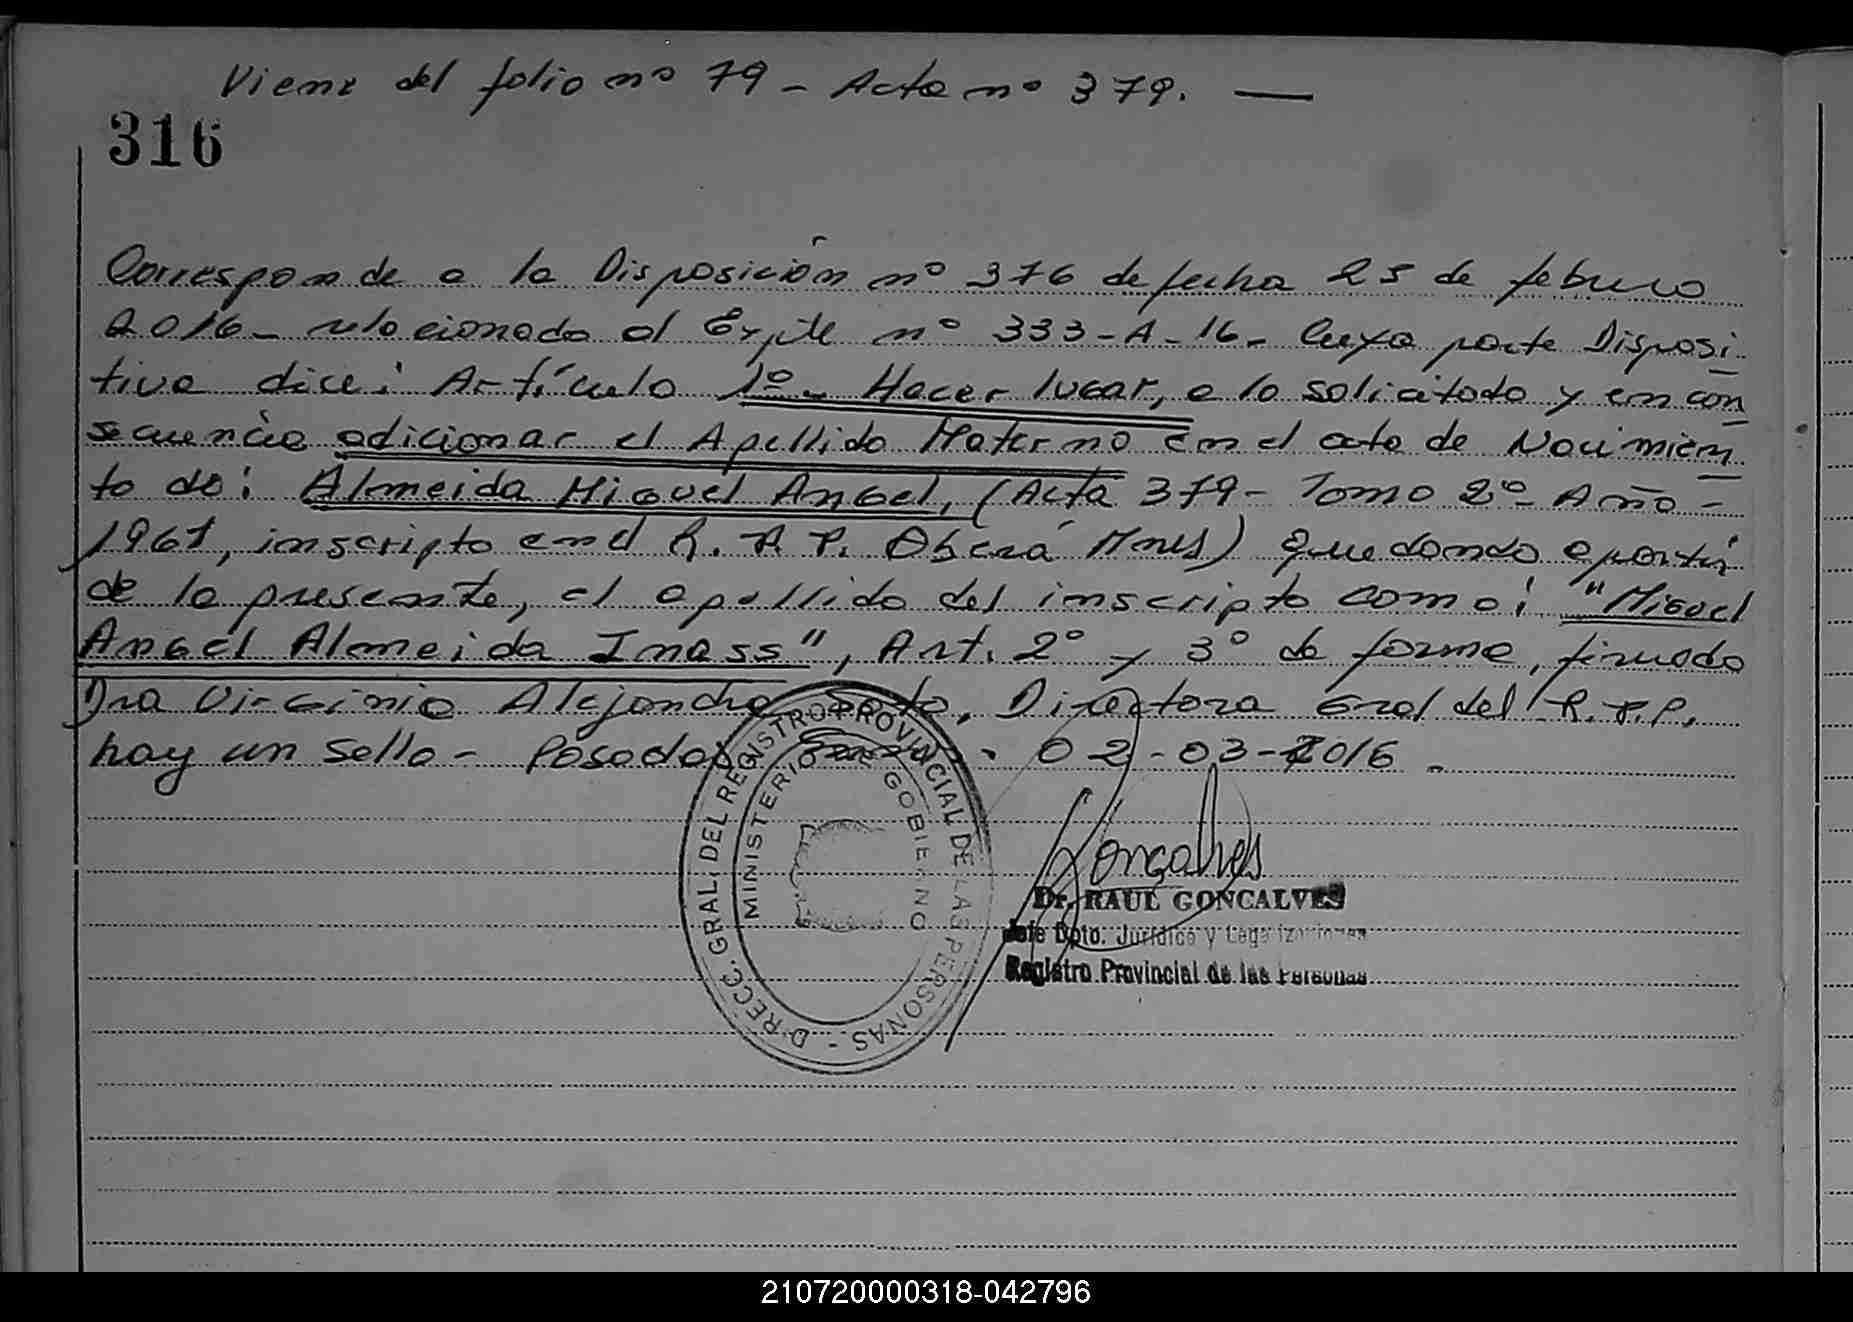 Viene del folio nº 79 - Acta nº 379. —
316
Corresponde a la Disposición nº 376 de fecha 25 de febrero
2016 - relacionado al Expte nº 333-A-16- Cuya parte Disposi-
tiva dice: Artículo 1º- Hacer lugar, a lo solicitado y en con
secuencia adicionar el Apellido Materno en el acta de Nacimien
to de: Almeida Miguel Angel, (Acta 379 - Tomo 2º- Año -
1961, inscripto en el R. P. P. Oberá Mnes) quedando a partir
de la presente, el apellido del inscripto como: "Miguel
Angel Almeida Imass", Art. 2º y 3º de forma, firmado
Dra Virginia Alejandra Soto, Directora Gral del R. P. P.
hay un sello - Posadas - 02-03-2016.
DIRECC. GRAL. DEL REGISTRO PROVINCIAL DE LAS PERSONAS -
MINISTERIO DE GOBIERNO
Goncalves
Dr. RAUL GONCALVES
Jefe Dpto. Jurídico y Legalizaciones
Registro Provincial de las Personas
210720000318-042796